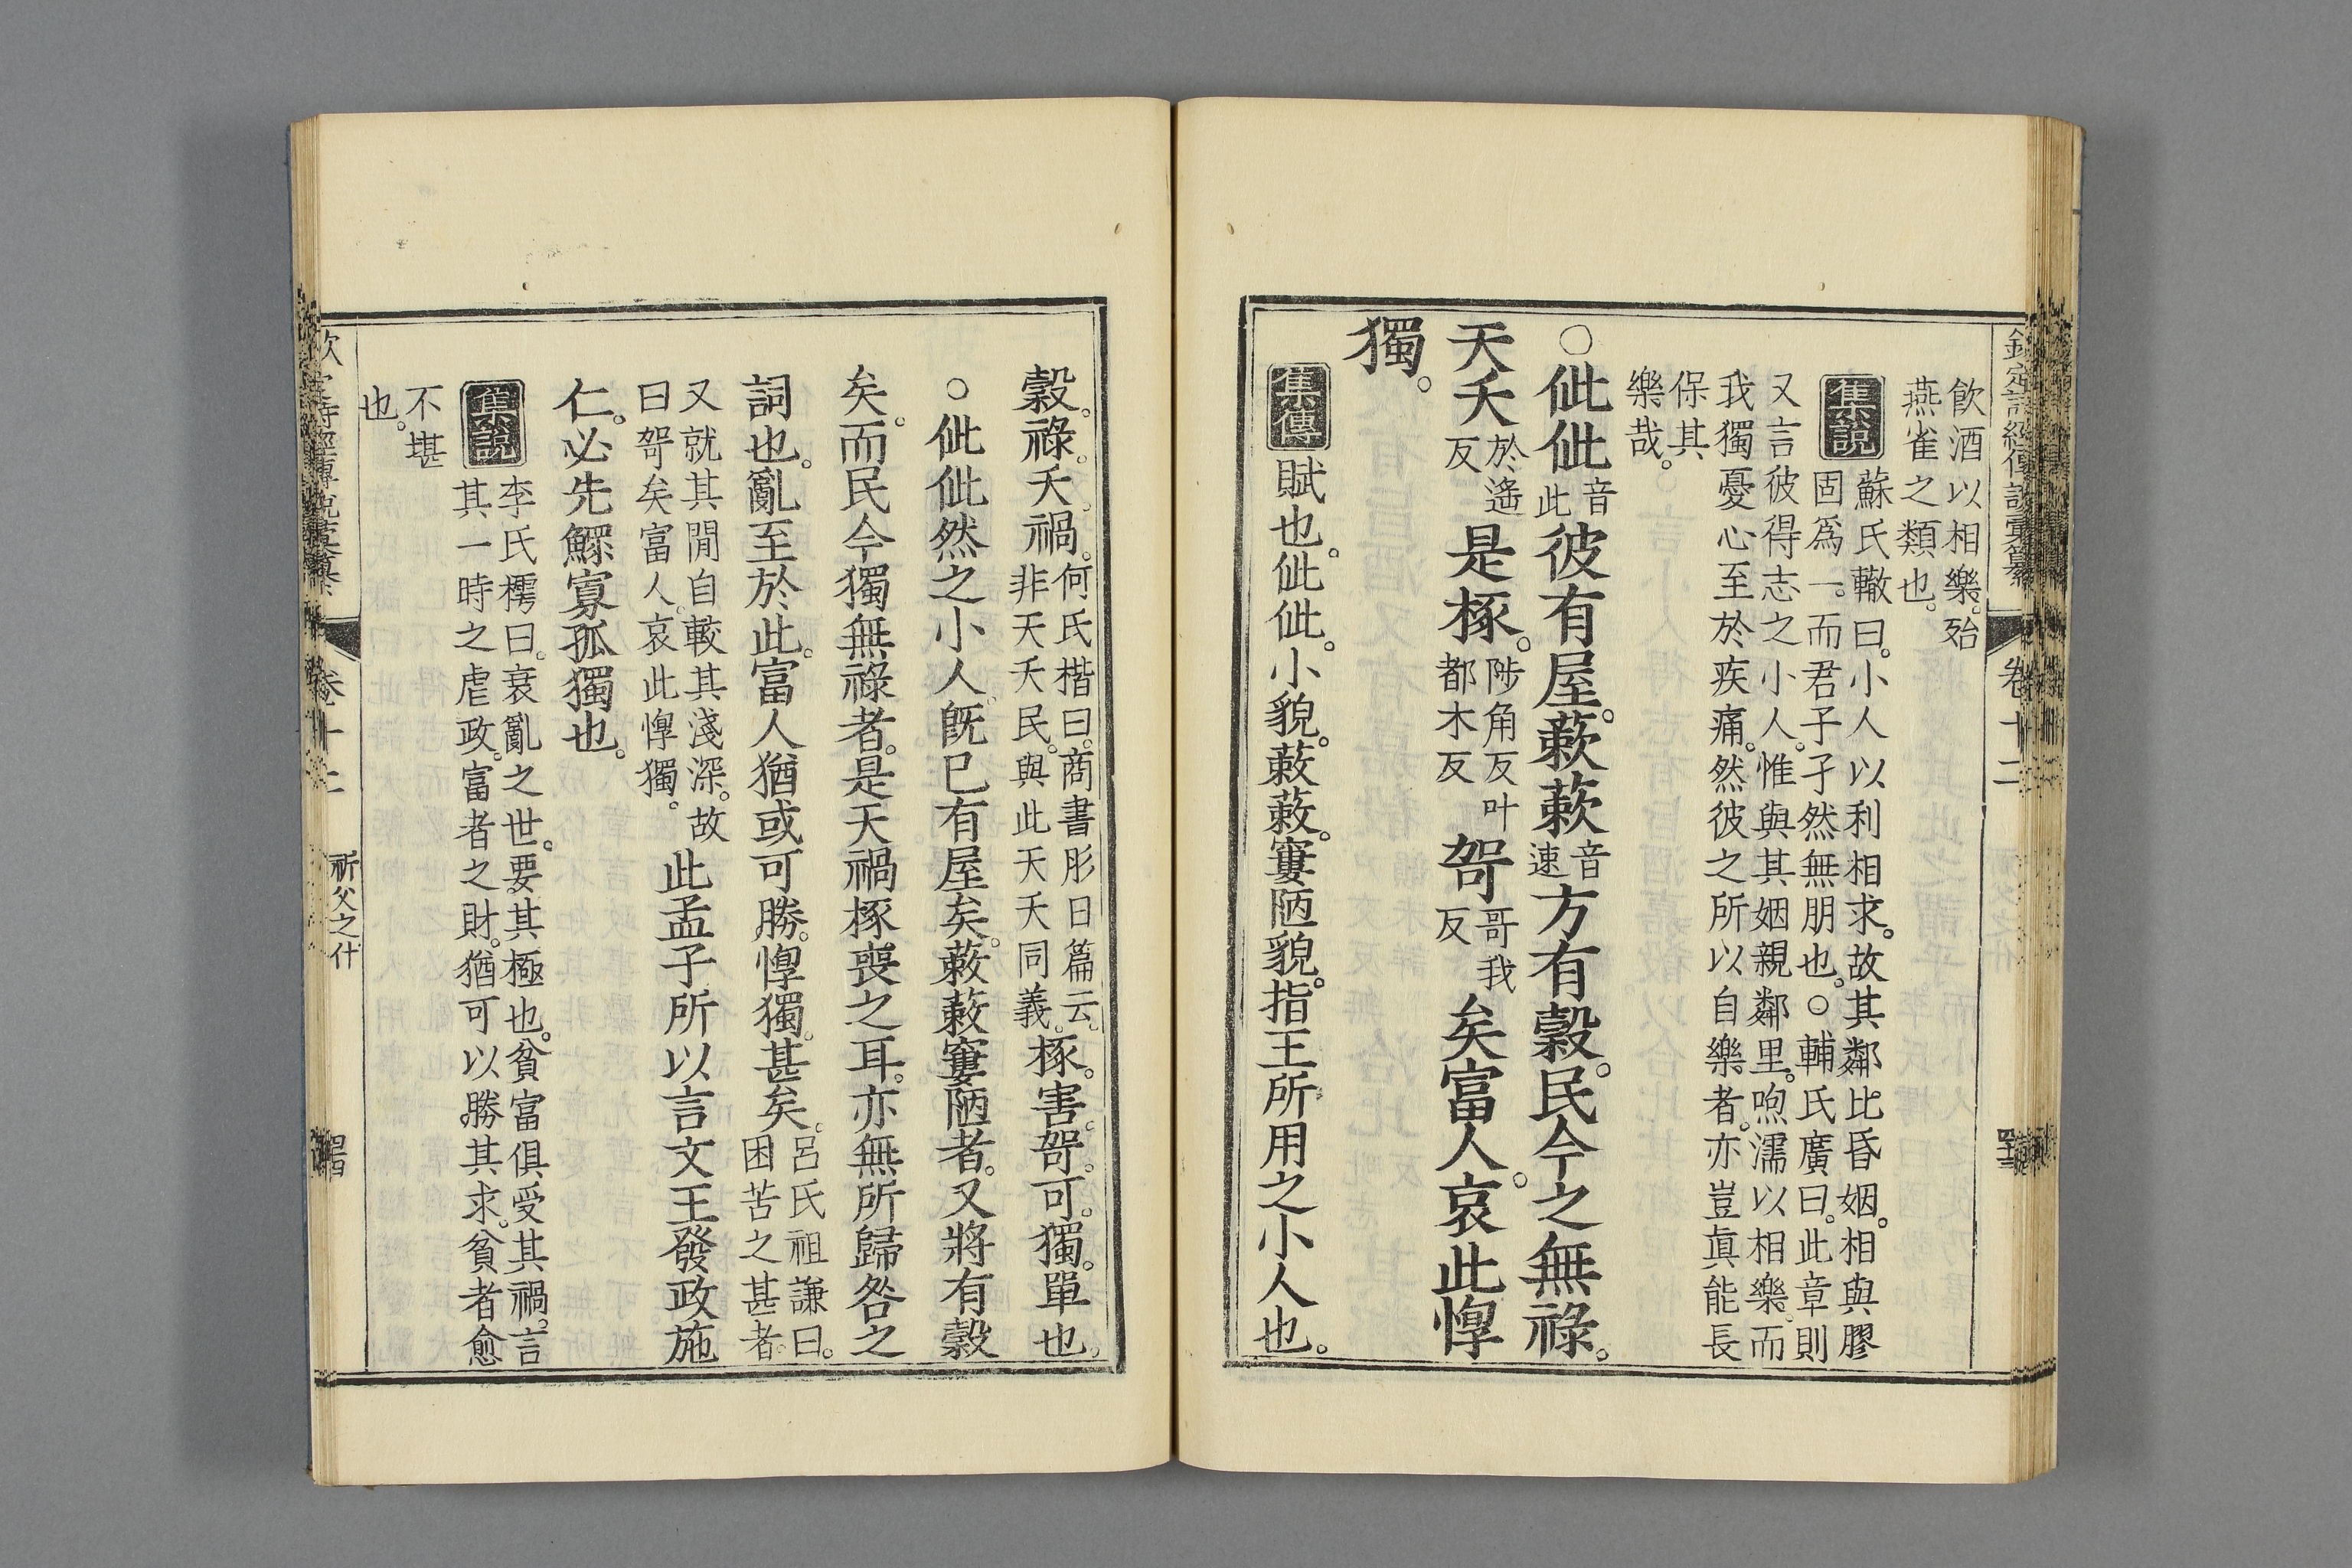 欽定詩經傳說彙纂 卷十二
飲酒以相樂。殆
燕雀之類也。
集說
蘇氏轍曰。小人以利相求。故其鄰比昏姻。相與膠
固爲一。而君子孑然無朋也。○輔氏廣曰。此章則
又言彼得志之小人。惟與其姻親鄰里。呴濡以相樂。而
我獨憂心至於疾痛。然彼之所以自樂者。亦豈眞能長
保其
樂哉。
○佌佌音此彼有屋。蔌蔌音速方有穀。民今之無祿。
天夭於遙反是椓。陟角反叶都木反哿哥我反矣富人。哀此惸
獨。
集傳 賦也。佌佌。小貌。蔌蔌。窶陋貌。指王所用之小人也。
穀。祿。夭。禍。何氏楷曰。商書肜日篇云。非天夭民。與此天夭同義。椓。害。哿。可。獨。單也。
○佌佌然之小人。旣已有屋矣。蔌蔌窶陋者。又將有穀
矣。而民今獨無祿者。是天禍椓喪之耳。亦無所歸咎之
詞也。亂至於此。富人猶或可勝。惸獨甚矣。呂氏祖謙曰。困苦之甚者。
又就其閒自較其淺深。故曰哿矣富人。哀此惸獨。此孟子所以言文王發政施
仁。必先鰥寡孤獨也。
集說
李氏樗曰。衰亂之世。要其極也。貧富俱受其禍。言
其一時之虐政。富者之財。猶可以勝其求。貧者愈
不堪
也。
祈父之什